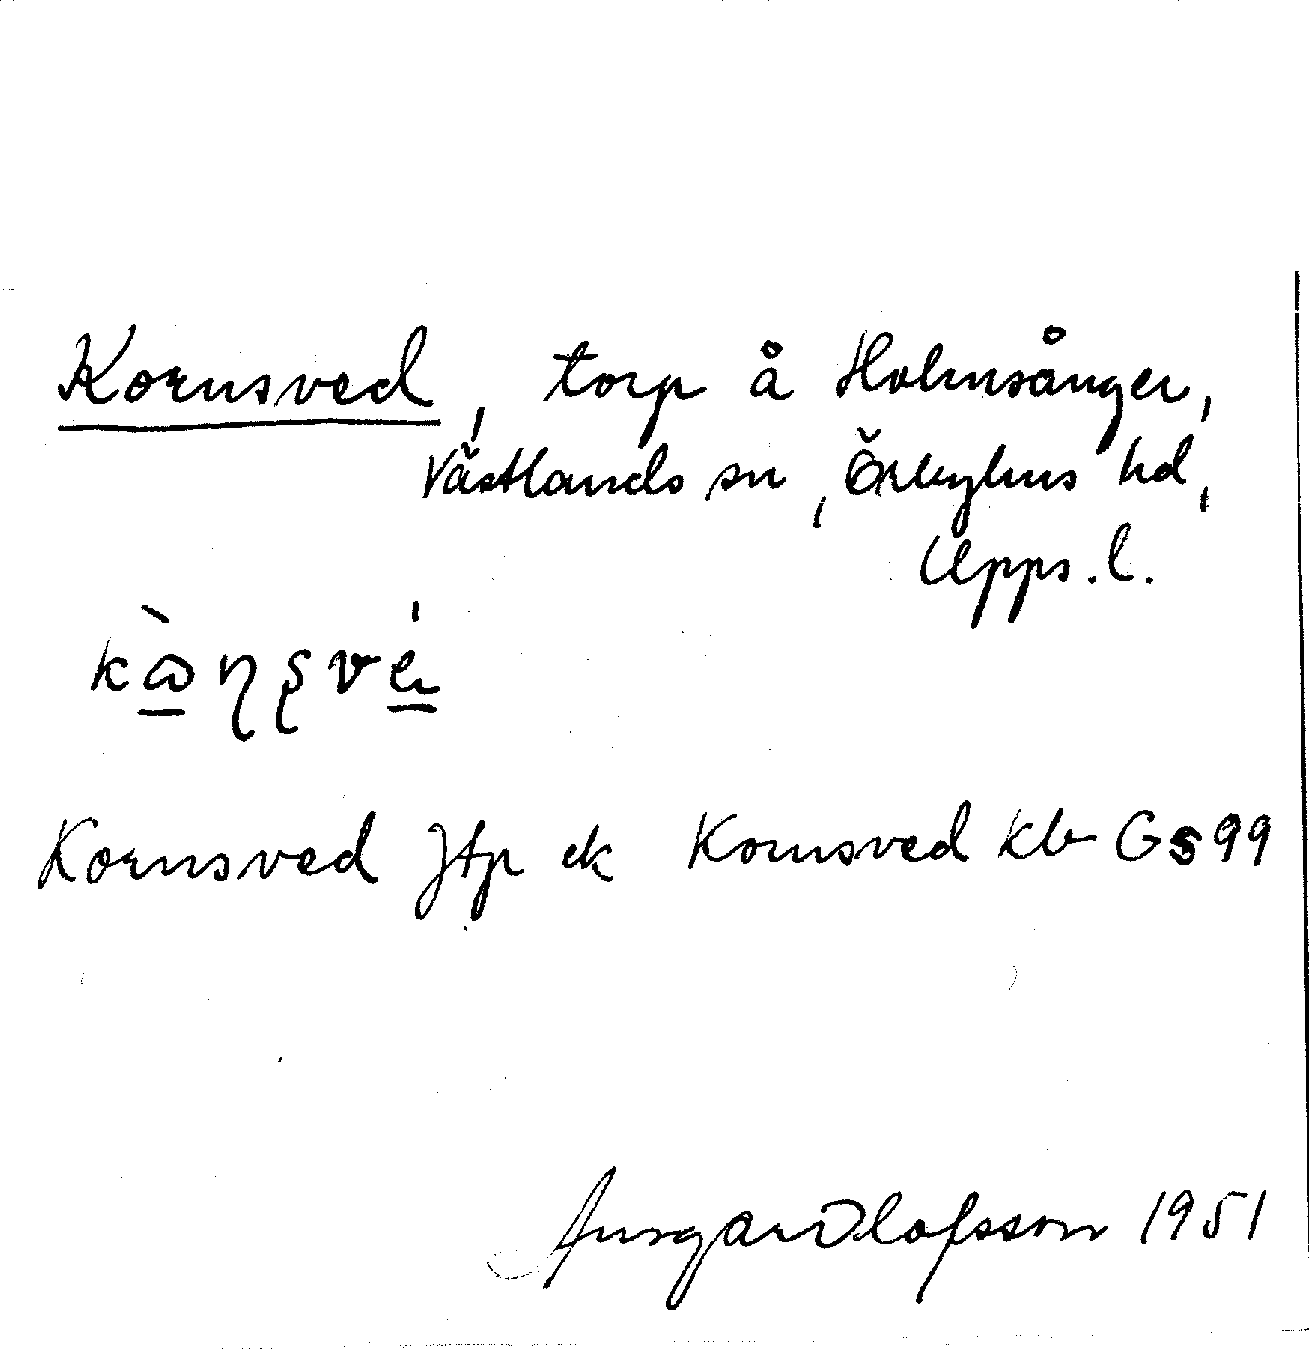 Kornsved, torp å Holmsånger,
Västlands sn, Örbyhus hd,
Upps. l.
Kornsved Jtp ek Kornsved kb G599
Ansgar Olofsson 1951